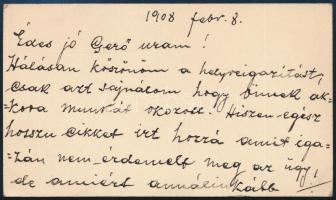 1908 febr. 8.
Édes jó Gerő uram!
Hálásan köszönöm a helyreigazítást,
csak azt sajnálom hogy önnek ak-
kora munkát okozott. Hiszen egész
hosszu cikket írt hozzá amit iga-
=zán nem érdemelt meg az ügy,
de amiért annálinkább